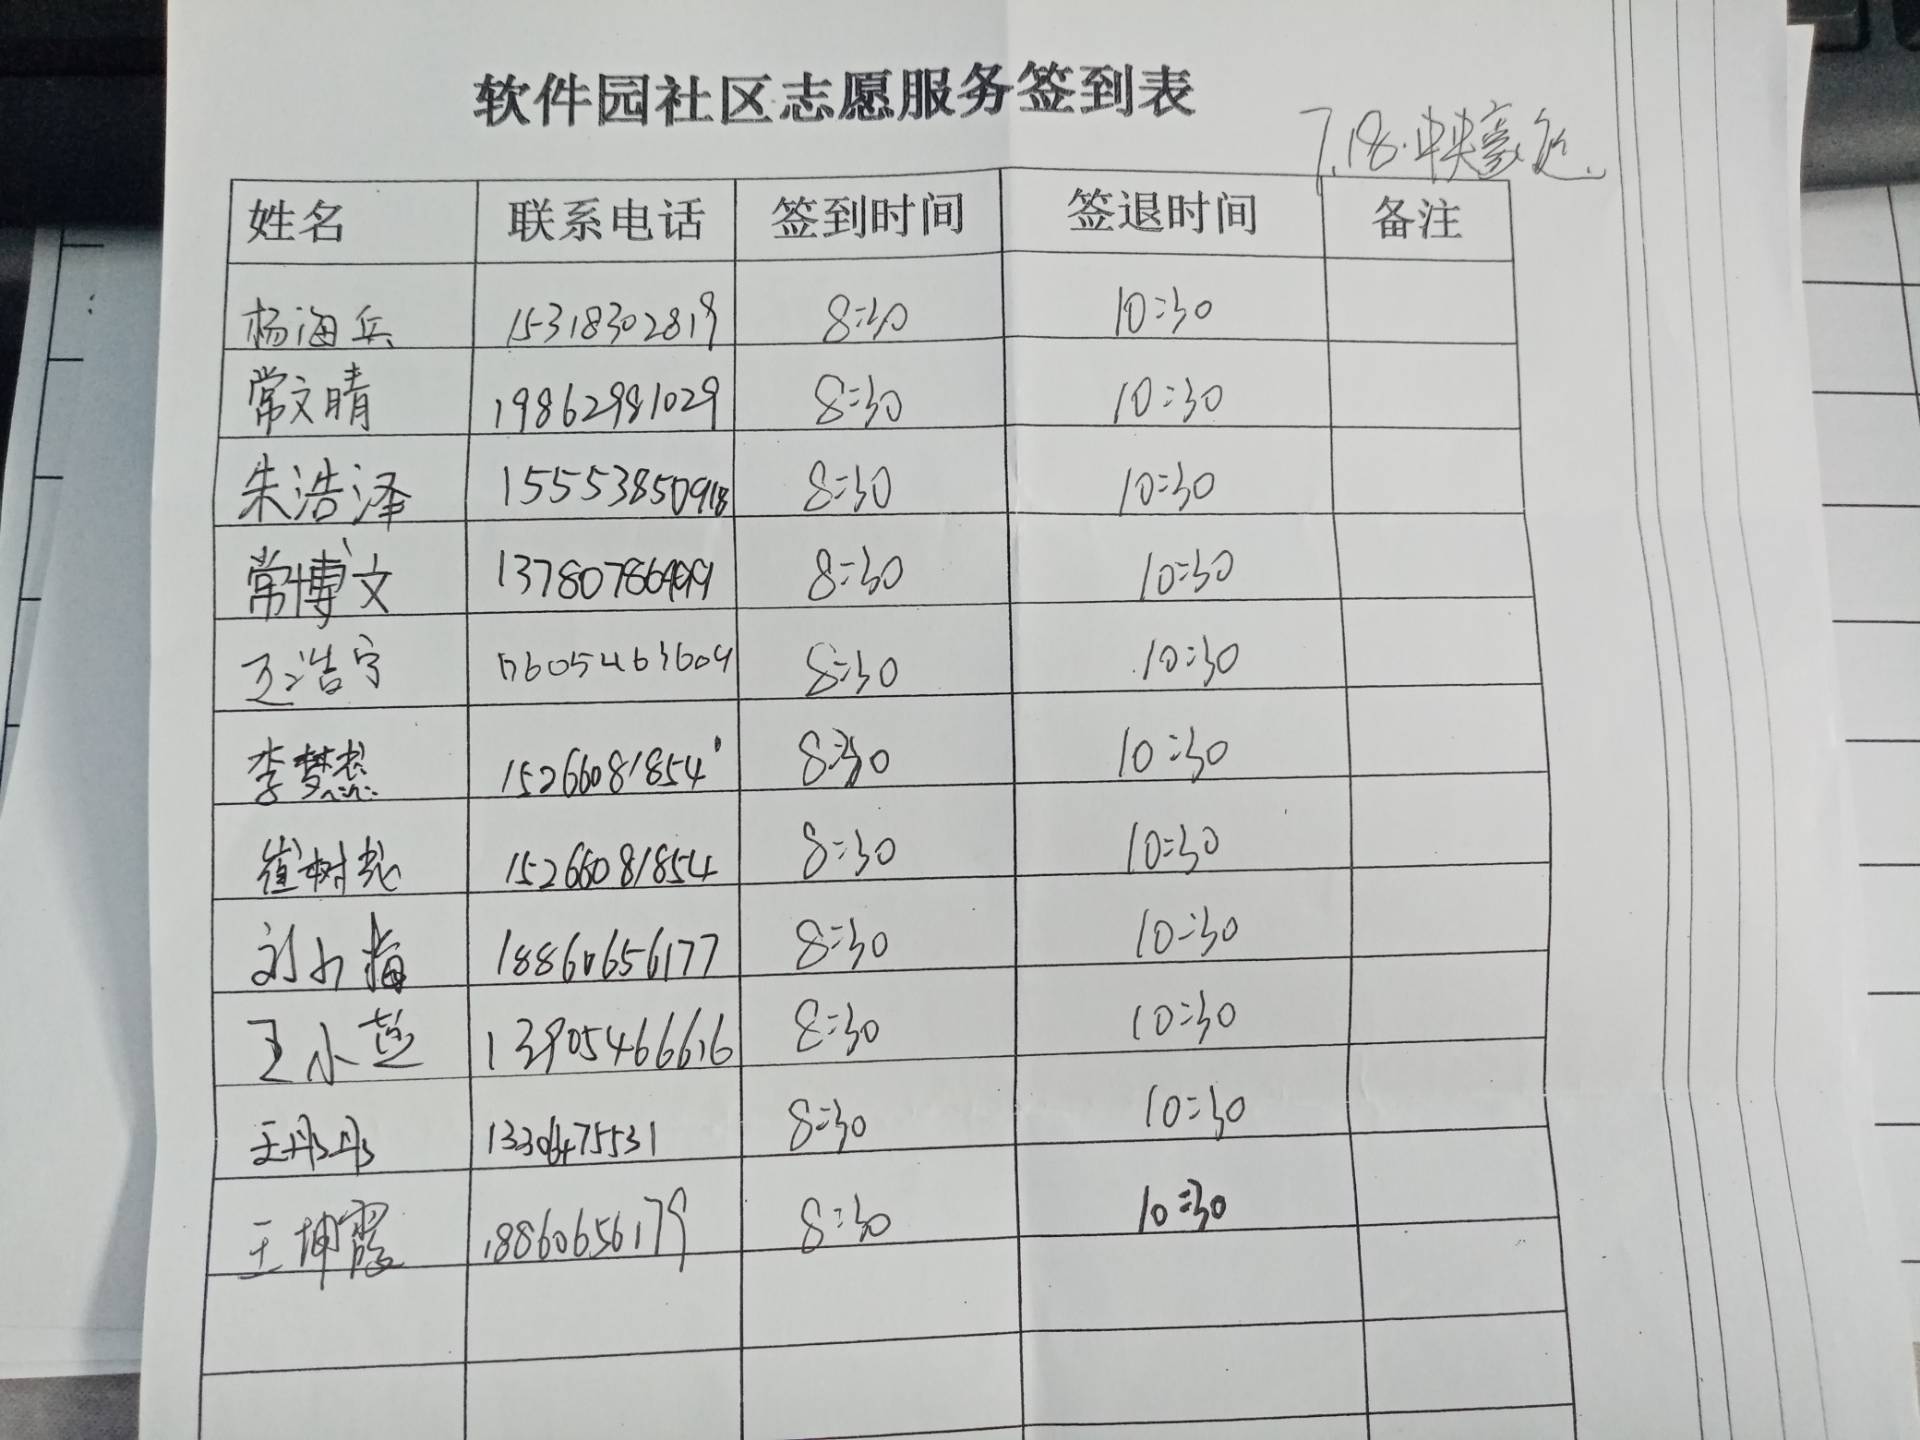 软件园社区志愿服务签到表
7.18.中央豪庭.
姓名 联系电话 签到时间 签退时间 备注
杨海兵 15318302819 8:30 10:30
常文晴 19862981029 8:30 10:30
朱浩泽 15553850918 8:30 10:30
常博文 8:30 10:30
王浩宇 8:30 10:30
李梦蕊 15266081854 8:30 10:30
崔树龙 15266081854 8:30 10:30
刘小梅 18860656177 8:30 10:30
王小芝 13905466616 8:30 10:30
王彤彤 8:30 10:30
王坤霞 18860656179 8:30 10:30